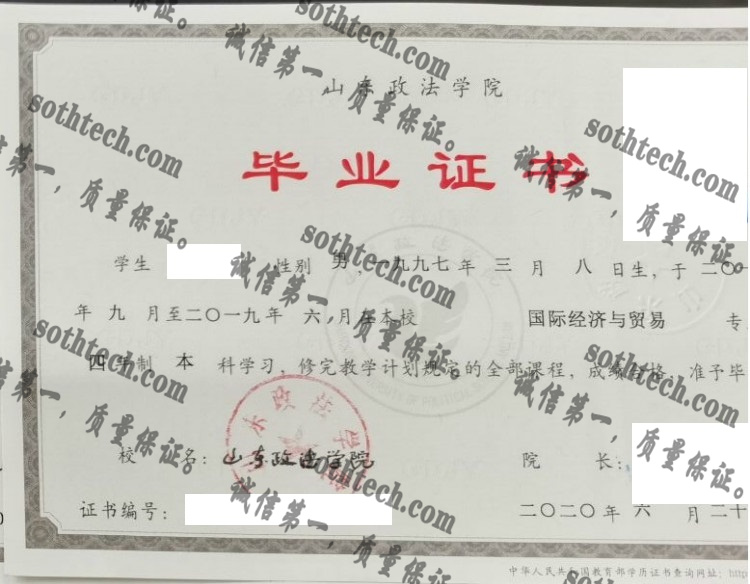 山东政法学院
毕业证书
学生 ,性别 男,一九九七年 三 月 八 日生,于二〇
年 九 月至二〇一九年 六 月在本校 国际经济与贸易 专
四年制 本 科学习,修完教学计划规定的全部课程,成绩合格,准予毕
校 名:山东政法学院 院 长:
证书编号: 二〇二〇年 六 月 二十
中华人民共和国教育部学历证书查询网址:http
sothtech.com
诚信第一,质量保证。
sothtech.com
诚信第一,质量保证。
sothtech.com
诚信第一,质量保证。
sothtech.com
诚信第一,质量保证。
sothtech.com
诚信第一,质量保证。
sothtech.com
诚信第一,质量保证。